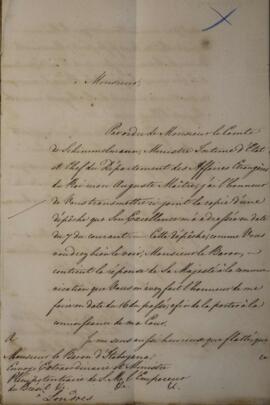 Monsieur,
Par ordre de Monsieur le Comte
de Schimmelmann, Ministre Intime d'Etat
et Chef du Département des Affaires Etrangères
du Roi mon Auguste Maître, j'ai l'honneur
de Vous transmettre ci-joint la copie d'une
dépêche que Son Excellence m'a adressée en date
du 7 du courant. Cette dépêche, comme Vous
voudrez bien le voir, Monsieur le Baron,
contient la réponse de Sa Majesté à la commu-
nication que Vous m'avez fait l'honneur de me
faire en date du 16 du passé, afin de la porter à la
connaissance de ma Cour.
Je me sens aussi heureux que flatté, que
A
Monsieur le Baron d'Itabayana
Envoyé Extraordinaire et Ministre
Plénipotentiaire de S. M. l'Empereur
du Brésil
à Londres